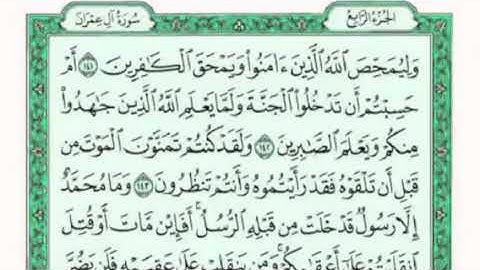 الجزء الرابع
سورة آل عمران
وَلِيُمَحِّصَ ٱللَّهُ ٱلَّذِينَ ءَامَنُوا۟ وَيَمْحَقَ ٱلْكَـٰفِرِينَ ١٤١ أَمْ
حَسِبْتُمْ أَن تَدْخُلُوا۟ ٱلْجَنَّةَ وَلَمَّا يَعْلَمِ ٱللَّهُ ٱلَّذِينَ جَـٰهَدُوا۟
مِنكُمْ وَيَعْلَمَ ٱلصَّـٰبِرِينَ ١٤٢ وَلَقَدْ كُنتُمْ تَمَنَّوْنَ ٱلْمَوْتَ مِن
قَبْلِ أَن تَلْقَوْهُ فَقَدْ رَأَيْتُمُوهُ وَأَنتُمْ تَنظُرُونَ ١٤٣ وَمَا مُحَمَّدٌ
إِلَّا رَسُولٌ قَدْ خَلَتْ مِن قَبْلِهِ ٱلرُّسُلُ ۚ أَفَإِي۟ن مَّاتَ أَوْ قُتِلَ
ٱنقَلَبْتُمْ عَلَىٰٓ أَعْقَـٰبِكُمْ ۚ وَمَن يَنقَلِبْ عَلَىٰ عَقِبَيْهِ فَلَن يَضُرَّ